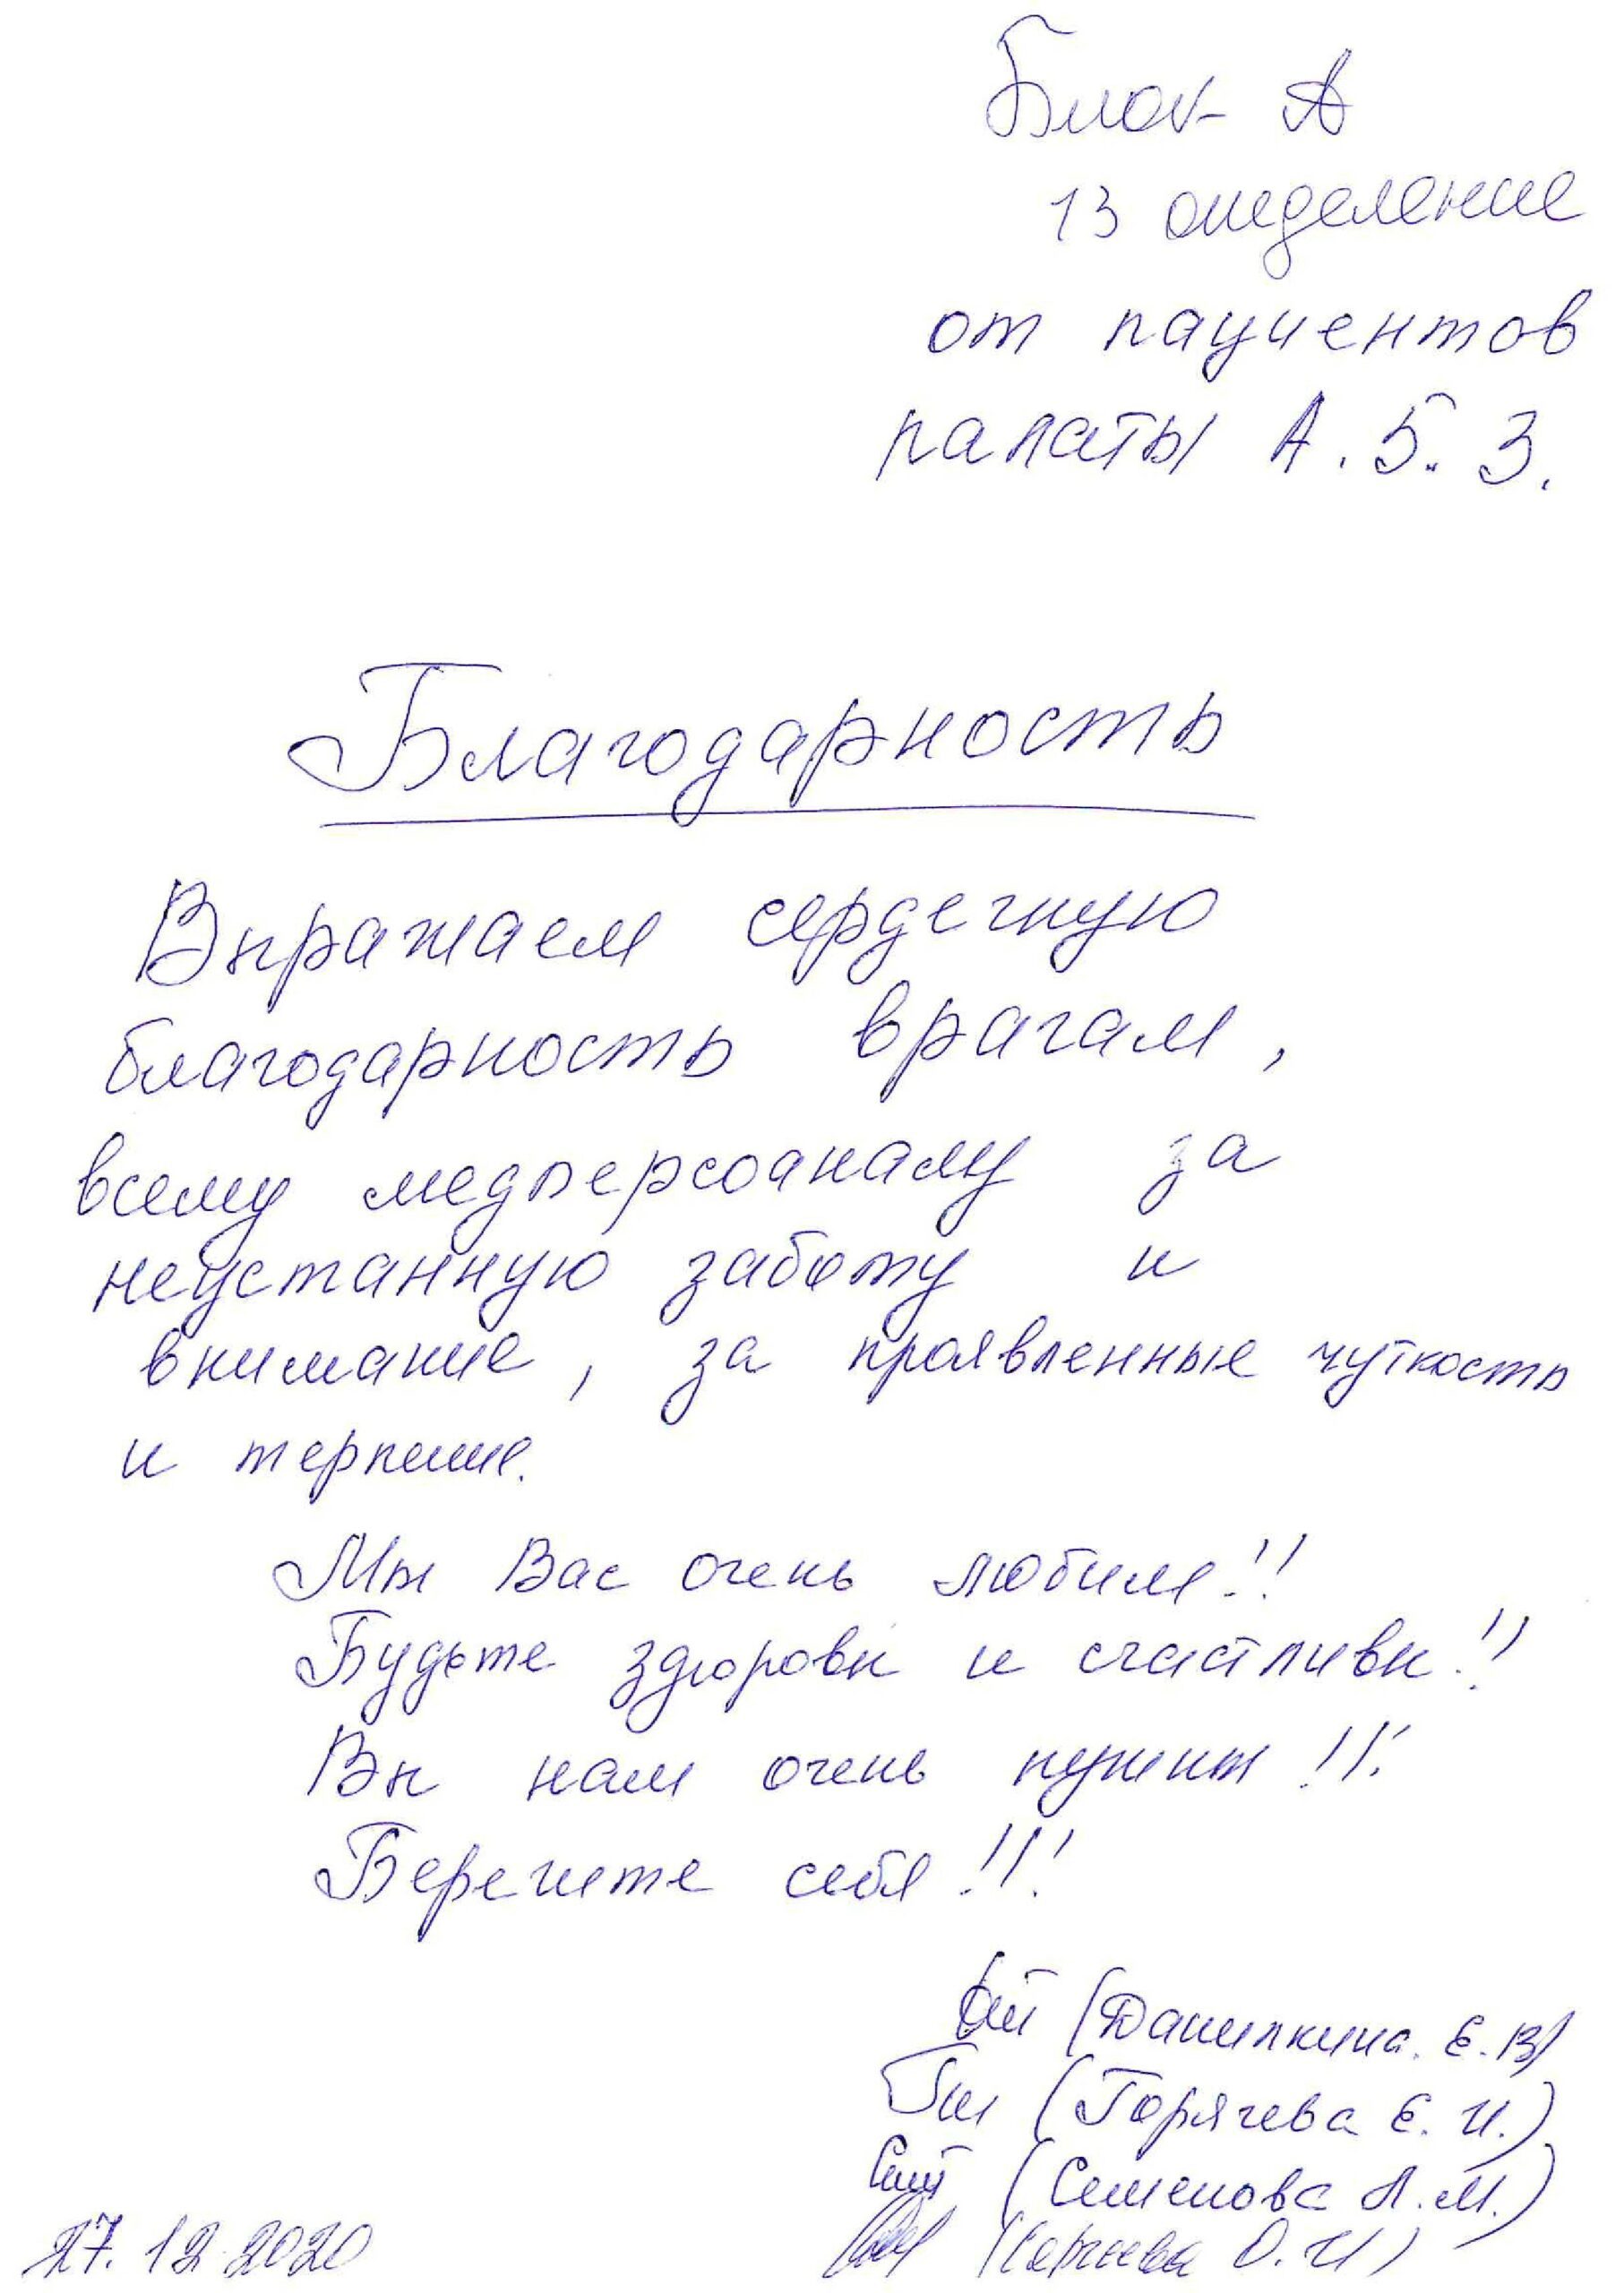 Блок А
13 отделение
от пациентов
палаты А. 5. 3.
Благодарность
Выражаем сердечную
благодарность врачам,
всему медперсоаналу за
неустанную заботу и
внимание, за проявленные чуткость
и терпение.
Мы Вас очень любим!!
Будьте здоровы и счастливы!!
Вы нам очень нужны!!!
Берегите себя!!!
(Данилкина. Е. В)
(Горячева Е. И.)
(Семенова А. М.)
27.12.2020 О. И)